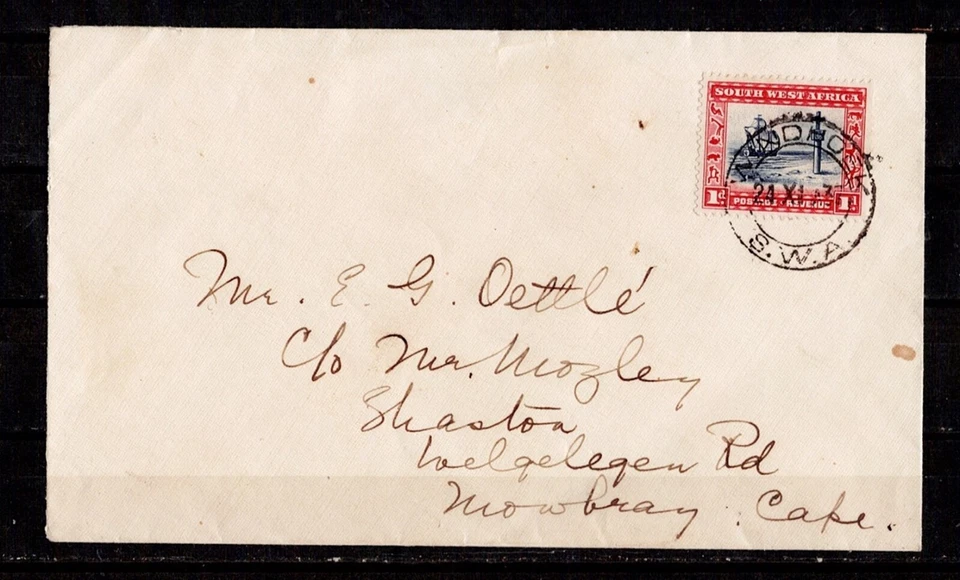 SOUTH WEST AFRICA
WINDHOEK
24 XI
1d POSTAGE REVENUE 1d
S.W.A.
Mr. E. G. Oettlé
C/o Mr. Mozley
Shaston
Welgelegen Rd
Mowbray. Cape.